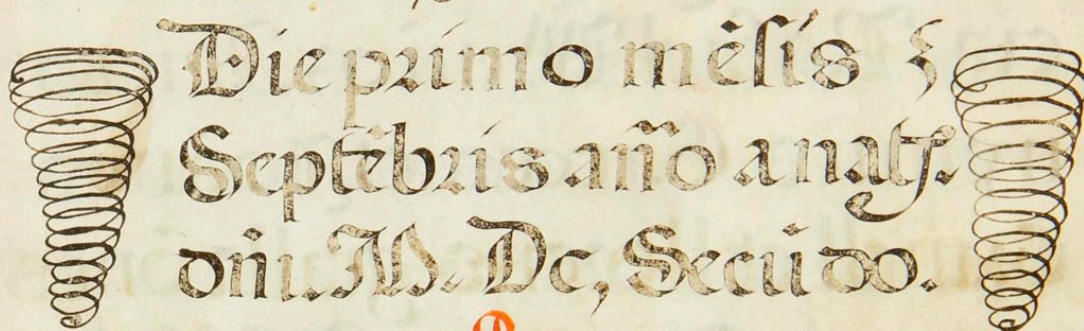 Die primo mẽsis
Septẽbris año a natˢ.
dñi. M. Dc, Secũdo.